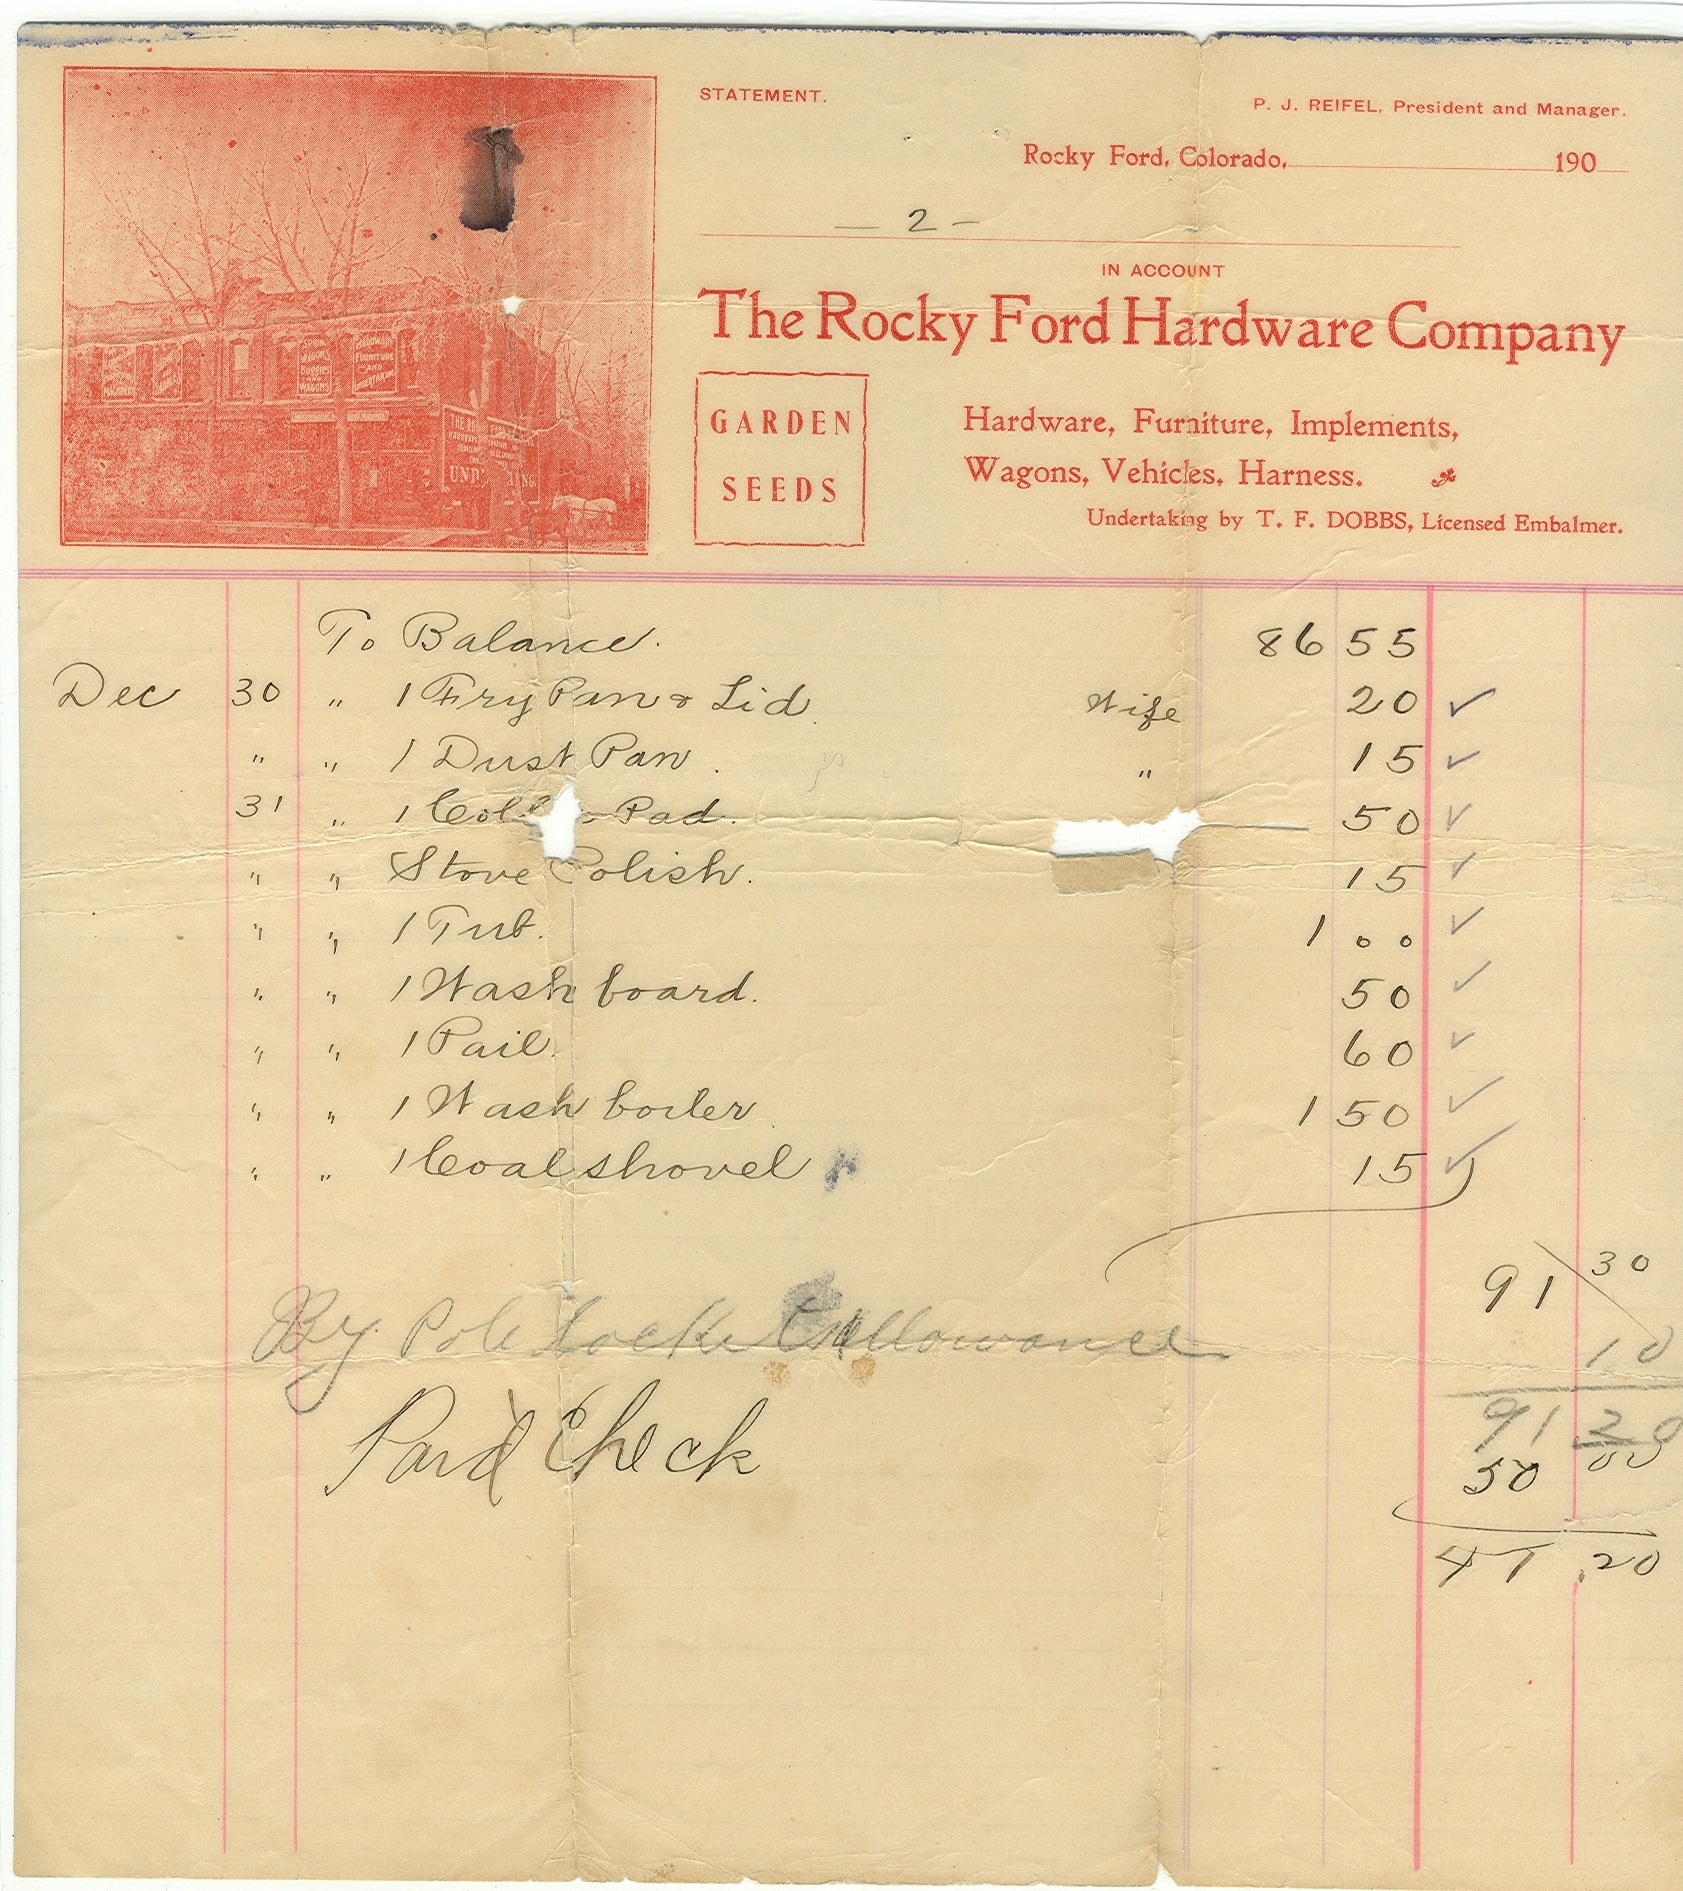 STATEMENT.
P. J. REIFEL, President and Manager.
Rocky Ford, Colorado, 190
— 2 —
IN ACCOUNT
The Rocky Ford Hardware Company
GARDEN
SEEDS
Hardware, Furniture, Implements,
Wagons, Vehicles, Harness.
Undertaking by T. F. DOBBS, Licensed Embalmer.
To Balance. 86 55
Dec 30 " 1 Fry Pan & Lid. Wife 20 ✓
" " 1 Dust Pan. " 15 ✓
31 " 1 Pad. 50 ✓
" " Stove Polish. 15 ✓
" " 1 Tub. 1 00 ✓
" " 1 Wash board. 50 ✓
" " 1 Pail. 60 ✓
" " 1 Wash boiler. 1 50 ✓
" " 1 Coal shovel 15 ✓
91 30
By Allowance 10
91 20
Paid Check 50 00
41.20